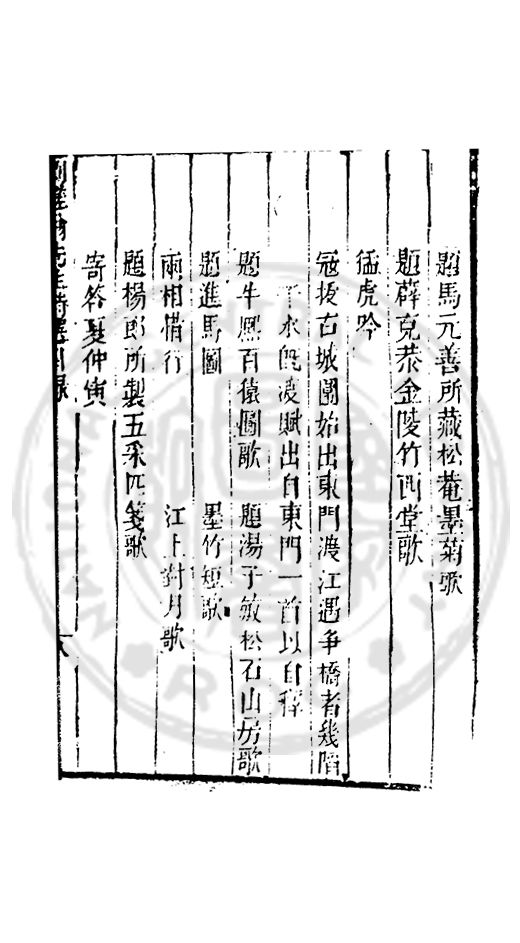 題馬元善所藏松菴墨菊歌
題薛克恭金陵竹西堂歌
猛虎吟
冦抜古城圍始出東門渡江遇爭橋者幾陷
于水旣渡賦出自東門一首以自釋
題牛熈百猿圖歌 題湯子敏松石山房歌
題進馬圖 墨竹短歌
兩相惜行 江上對月歌
題楊郎所製五采匹箋歌
寄答夏仲寅
先生詩選目錄 八